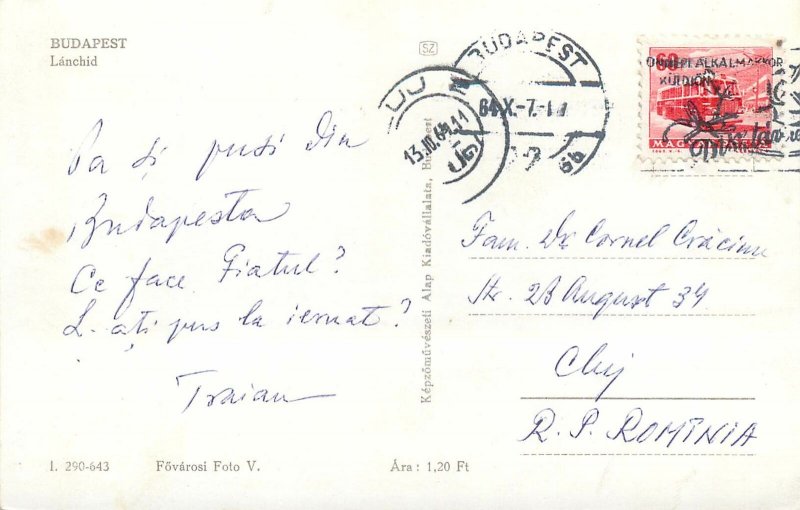 BUDAPEST
Lánchid
Pa și pusi din
Budapesta
Ce face Fiatul?
L-ați pus la iernat?
Traian
I. 290-643
Fővárosi Foto V.
Ára: 1,20 Ft
SZ
Képzőművészeti Alap Kiadóvállalata, Budapest
CLUJ
13.10.64.11
BUDAPEST
64-X.-7.-
60
ÜNNEPI ALKALMAKKOR
KÜLDJÖN
MAGYAR
Fam. Dr. Cornel Crăciun
Str. 23 August 34
Cluj
R. P. ROMÎNIA